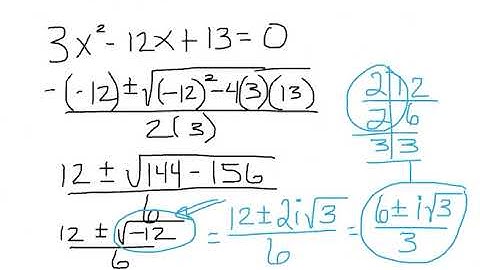 3x² - 12x + 13 = 0
-(-12) ± √((-12)² - 4(3)(13)) / 2(3)
12 ± √(144 - 156) / 6
12 ± √(-12) / 6 = 12 ± 2i√3 / 6 = 6 ± i√3 / 3
2 | 12
2 | 6
3 | 3
1